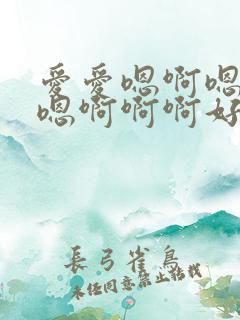 愛愛嗯啊嗯
嗯啊啊啊好
長弓雀鳥
未经同意禁止转载